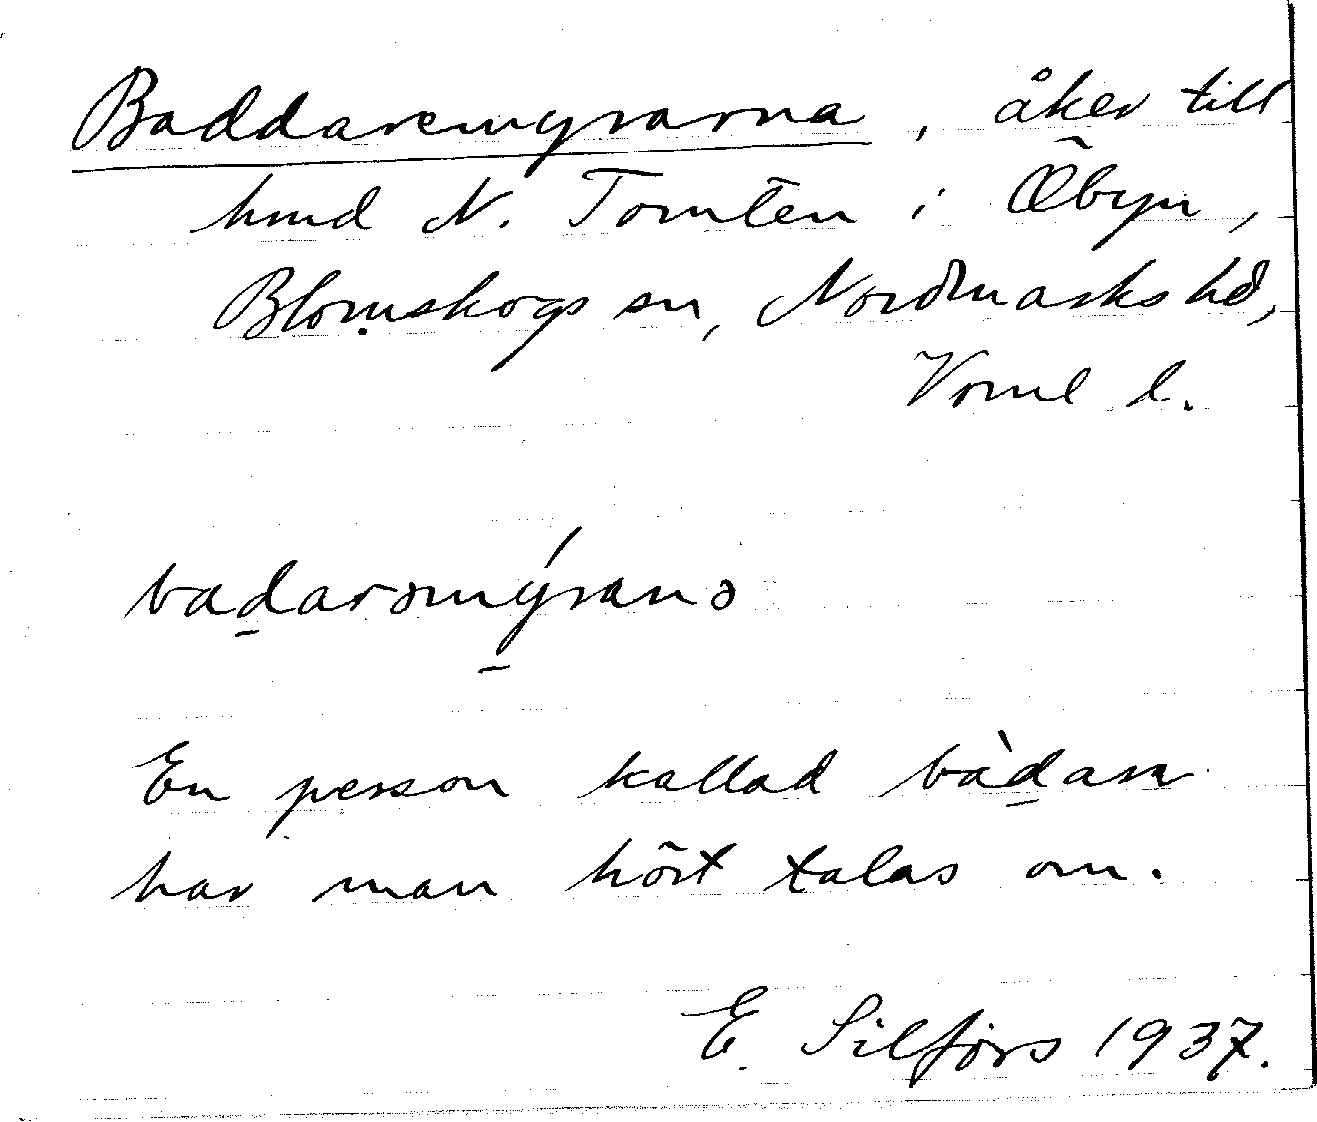 Baddaremyrarna, åker till
hmd N. Tomten i Öbyn,
Blomskogs sn, Nordmarks hd,
Vrml l.
bad̲arəmý̲ranə
En person kallad bàd̲ara
har man hört talas om.
E. Silfors 1937.